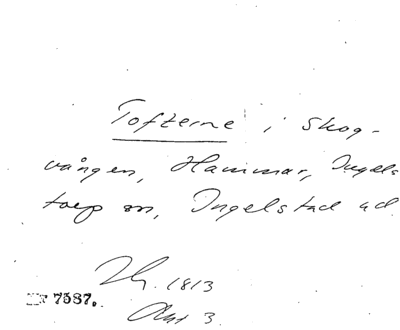 Tofterne i Skog-
vången, Hammar, Ingels
torp sn, Ingelstad hd
1813
7587.
Akt 3